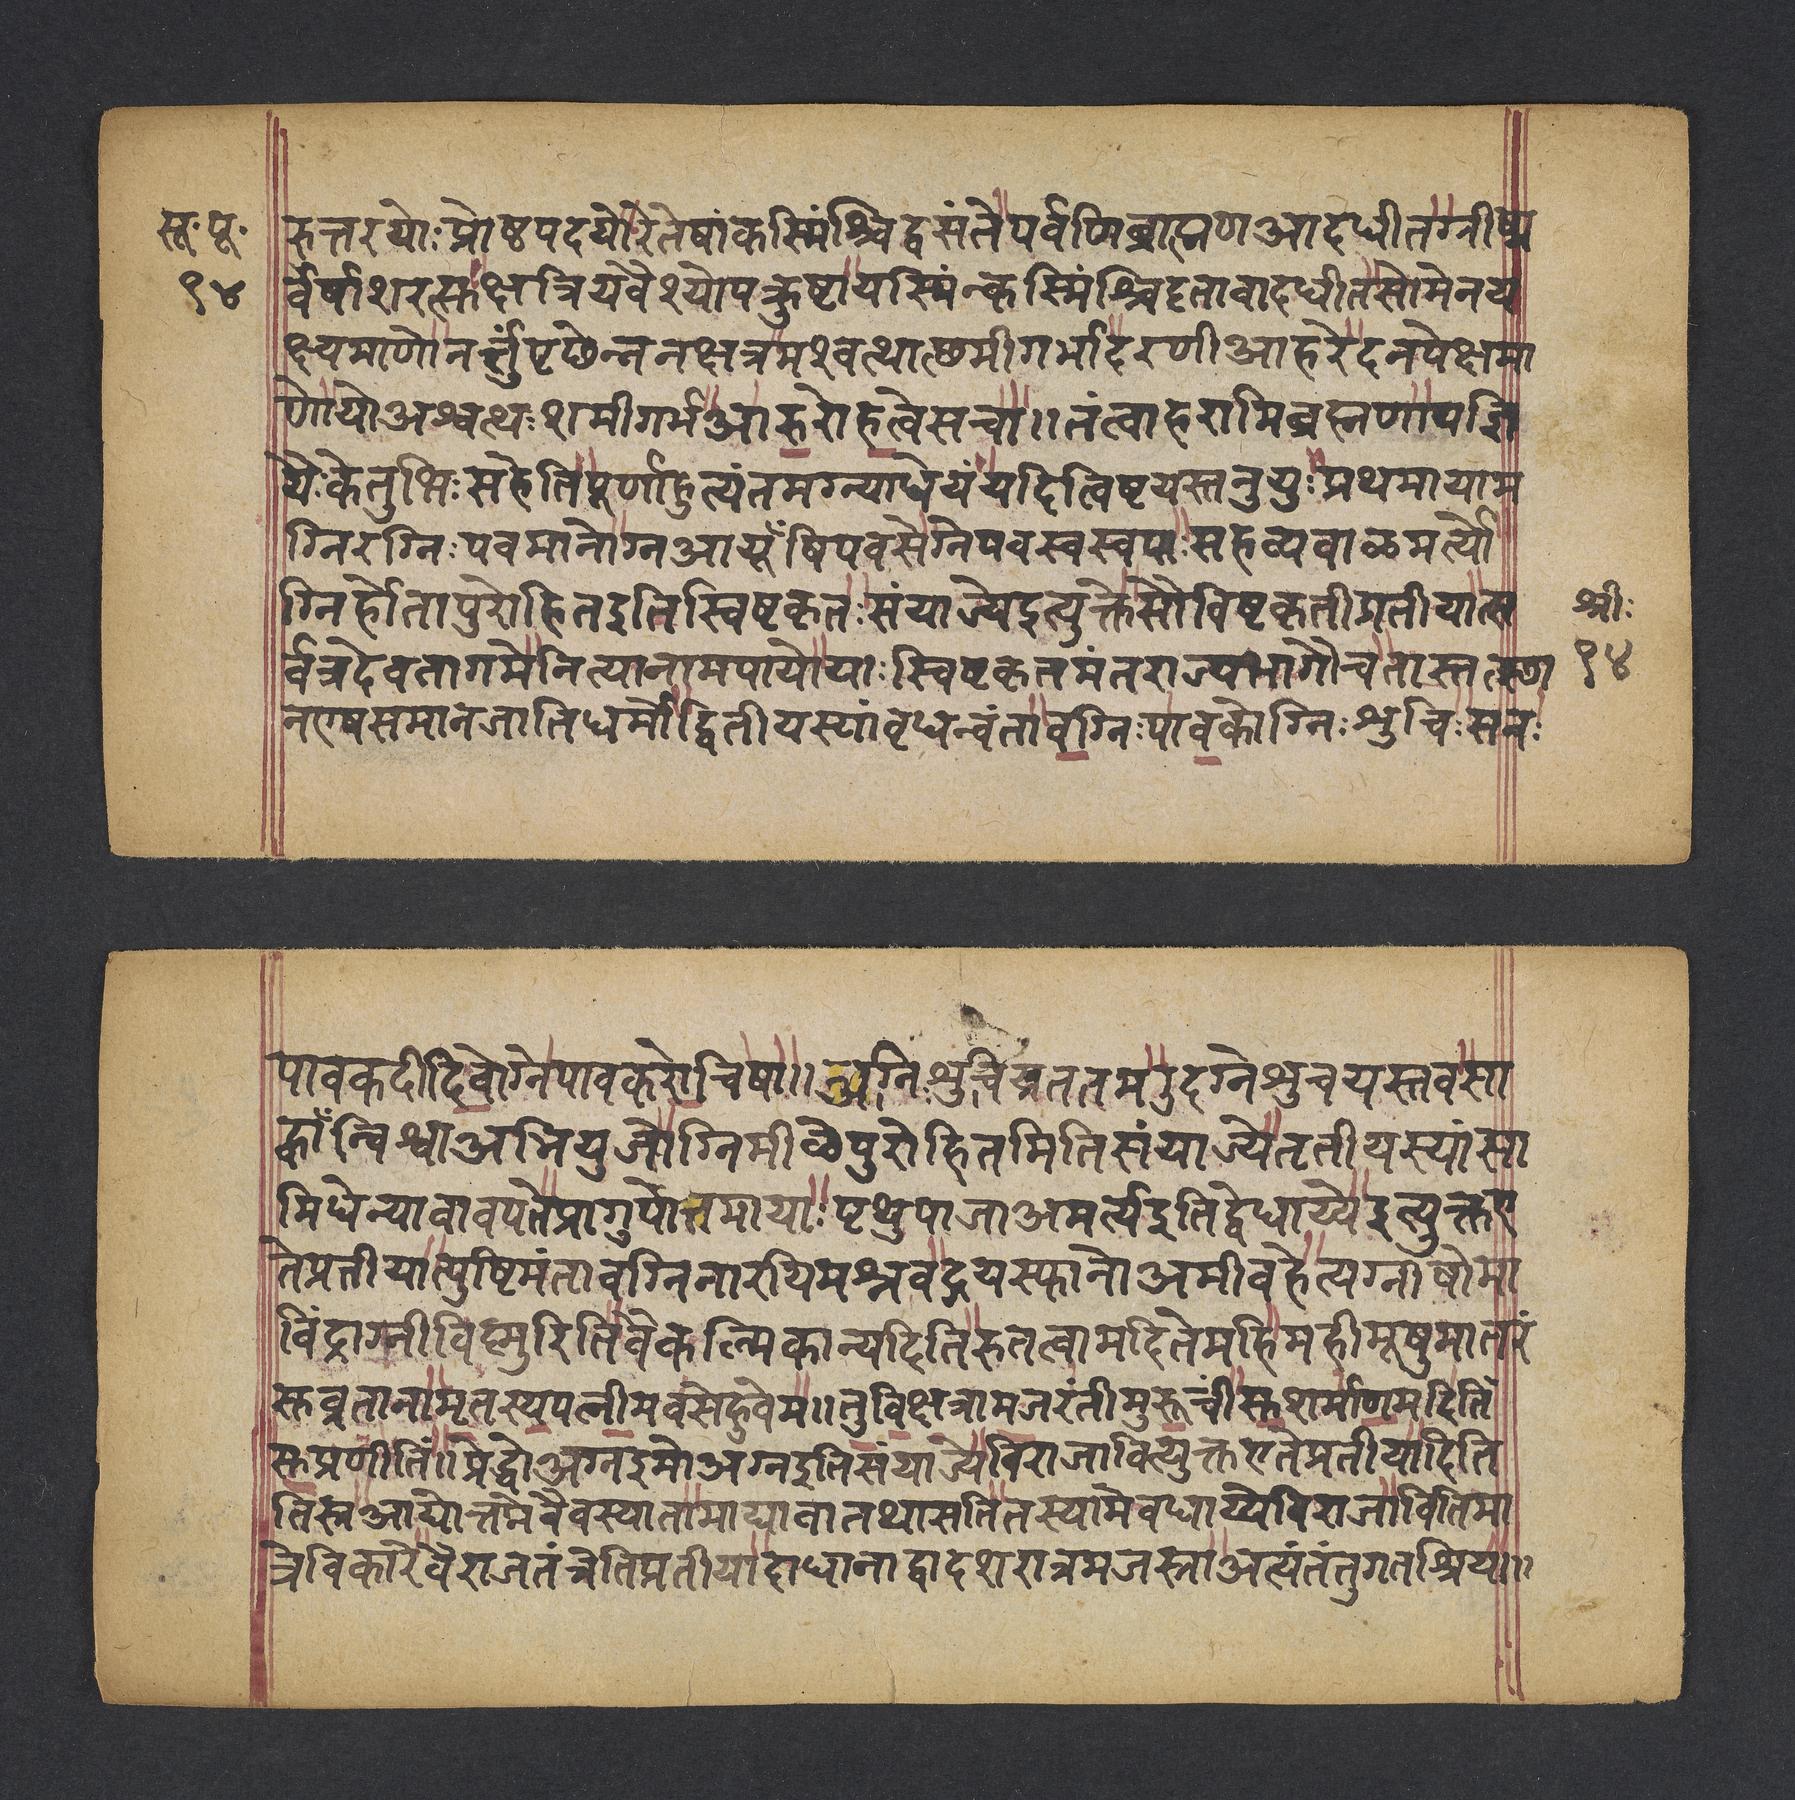 सू॰ पू॰
१४
रुत्तरयोः प्रोष्ठपदयोरेतेषांकस्मिंश्चिद्वसंतेपर्वणिब्राह्मणआदधीतग्रीष्म
र्वर्षाशरत्सुक्षत्रियवैश्योपक्रुष्टायस्मिंन्कस्मिंश्चिदृतावादधीतसोमेनय
क्ष्यमाणोनर्त्तुंपृछेन्ननक्षत्रमश्वत्थाछमीगर्भादरणीआहरेदनपेक्षमा
णोयोअश्वत्थः शमीगर्भआरुरोहत्वेसचा॥ तंत्वाहरामिब्रह्मणायज्ञि
यैः केतुभिः सहेतिपूर्णाहुत्यंतमग्न्याधेयंयदित्विष्टयस्तनुयुः प्रथमायाम
ग्निरग्निः पवमानोग्नआयूँषिपवसेग्नेपवस्वस्वपाः सहव्यवाळमर्त्यो
ग्निर्होतापुरोहितइतिस्विष्टकृतः संयाज्येइत्युक्तेसौविष्टकृतीप्रतीयात्स
र्वत्रदेवतागमेनित्यानामपायोयाः स्विष्टकृतमंतराज्यभागौचतास्तत्स्था
नएषसमानजातिधर्मोद्वितीयस्यांवृधन्वंतावग्निः पावकोग्निः शुचिः सनः
श्रीः
१४
पावकदीदिवोग्नेपावकरोचिषा॥ अग्निः शुचिव्रततमउदग्नेशुचयस्तवसा
ह्वाँन्विश्वाअभियुजोग्निमीळेपुरोहितमितिसंयाज्येतृतीयस्यांसा
मिधेन्यावावपतेप्रागुपोत्तमायाः पृथुपाजाअमर्त्यइतिद्वेधाय्येइत्युक्तए
तेप्रतीयात्पुष्टिमंतावग्निनारयिमश्नवद्गयस्फानोअमीवहेत्यग्नीषोमा
विंद्राग्नीविष्णुरितिवैकल्पिकान्यदितिरुतत्वामदितेमहिमहीमूषुमातरं
सुव्रतानामृतस्यपत्नीमवसेहुवेम॥ तुविक्षत्रामजरंतीमुरूचींसुशर्माणमदितिं
सुप्रणीतिं॥ प्रेद्धोअग्नइमोअग्नइतिसंयाज्येविराजावित्युक्तएतेप्रतीयादिति
तिस्रआद्योत्तमेवैवस्यातामाद्यावातथासतितस्यामेवधाय्येविराजावितिमा
त्रेविकारेवैराजतंत्रेतिप्रतीयादाधानाद्वादशरात्रमजस्राअत्यंतंतुगतश्रियः॥